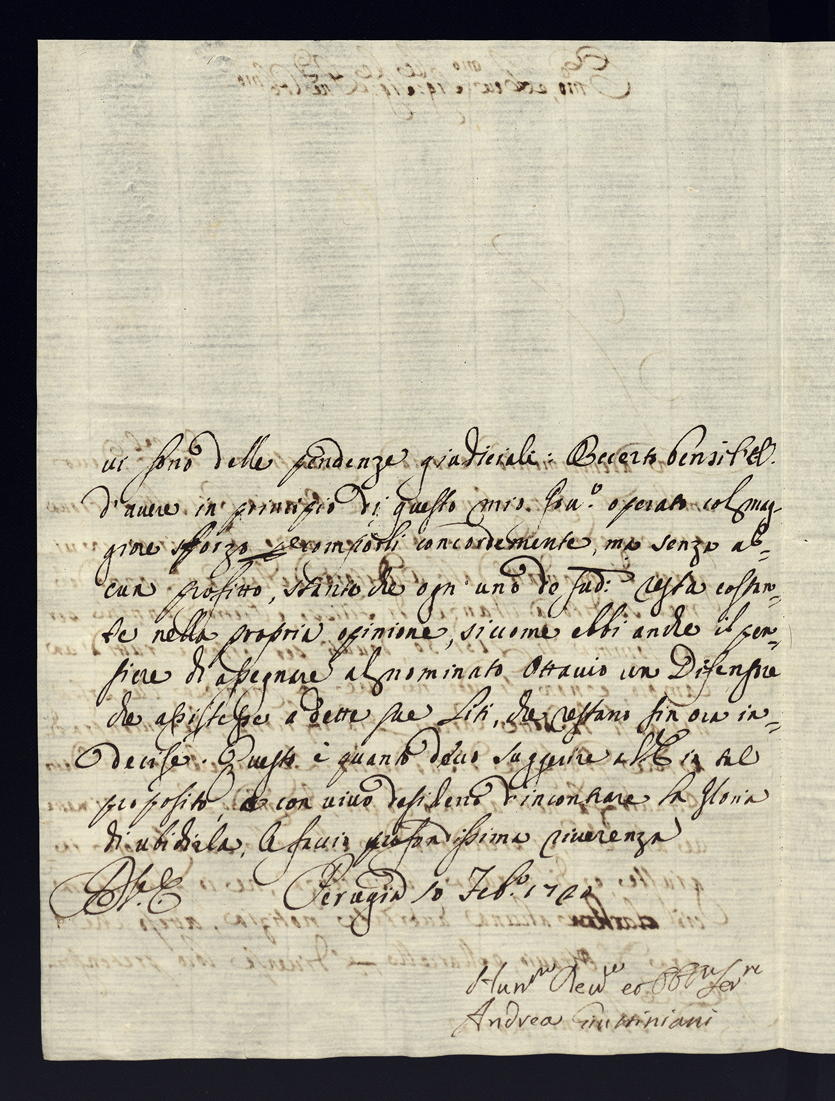 vi sono delle pendenze giudiciale: Accerto bensì V.E.
d'avere in principio di questo mio Gov.o operato col mag-
giore sforzo per comporli concordemente, ma senza al-
cun profitto, stante che ogn'uno de sud.i resta costan-
te nella propria opinione, siccome ebbi anche il pen-
siere di assegnare al nominato Ottavio un Difensore
che assistesse a dette sue Liti, che restano fin ora in-
decise. Questo è quanto devo suggerire all'E.V. in tal
proposito, e con vivo desiderio d'incontrare la Gloria
di ubidirla, le faccio profondissima riverenza
Di V.E. Perugia 10 Feb.o
Hum.mo Dev.o et Obb.mo Ser.re
Andrea Giustiniani